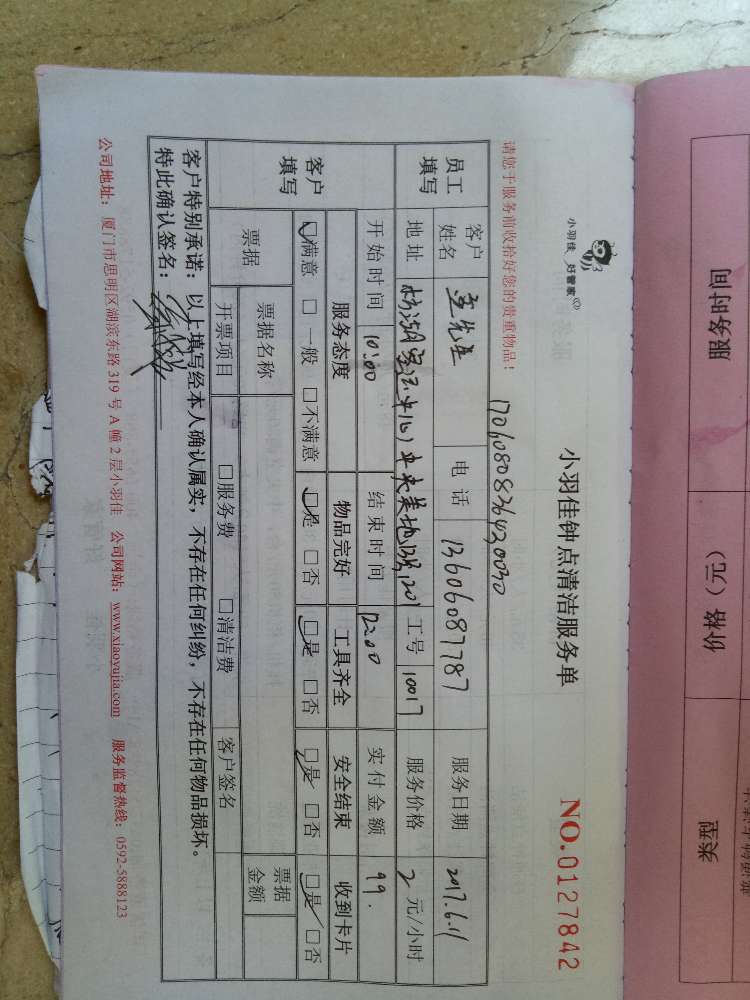 小羽佳 好管家
小羽佳钟点清洁服务单
NO.0127842
请您于服务前收拾好您的贵重物品!
员工填写
客户姓名
先生
电话 13606087787
服务日期 2017.6.11
地址
工号 10017
服务价格 2 元/小时
开始时间 10:00
结束时间 12:00
实付金额 99.
客户填写
服务态度 物品完好 工具齐全 安全结束 收到卡片
☑满意 □一般 □不满意 ☑是 □否 ☑是 □否 ☑是 □否 ☑是 □否
票据
票据名称
票据金额
开票项目 □服务费 □清洁费 客户签名
客户特别承诺:以上填写经本人确认属实,不存在任何纠纷,不存在任何物品损坏。
特此确认签名:
公司地址:厦门市思明区湖滨东路 319 号 A 幢 2 层小羽佳 公司网站:www.xiaoyujia.com 服务监督热线:0592-5888123
服务时间
价格(元)
类型